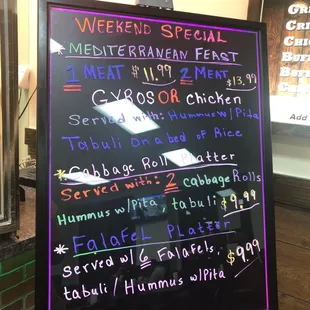 WEEKEND SPECIAL
* MEDITERRANEAN FEAST
1 MEAT $11.99 2 MEAT $13.99
GYROS OR chicken
Served with: Hummus w/ Pita
Tabuli On a bed of Rice
* Cabbage Roll Platter
Served with: 2 cabbage Rolls
Hummus w/Pita, tabuli $9.99
* Falafel Platter
Served w/ 6 Falafels,
tabuli / Hummus w/Pita $9.99
Add